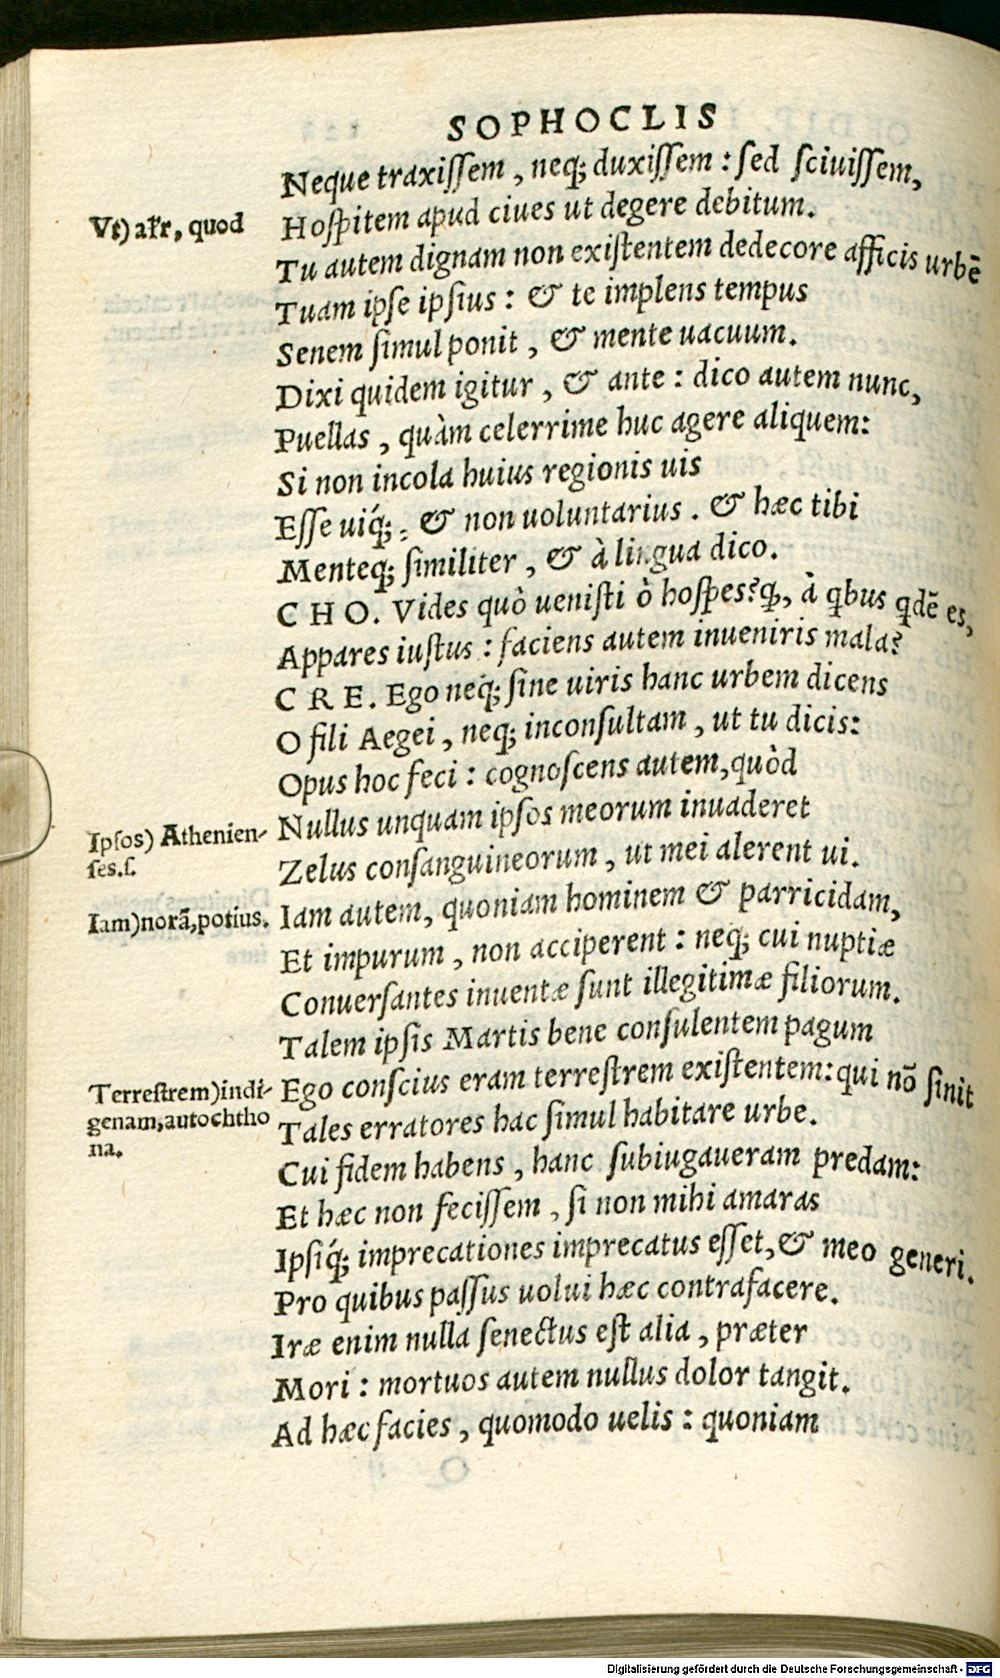 SOPHOCLIS
Neque traxissem, neq; duxissem: sed sciuissem,
Vt) ar̃r, quod
Hospitem apud ciues ut degere debitum.
Tu autem dignam non existentem dedecore afficis urbē
Tuam ipse ipsius: & te implens tempus
Senem simul ponit, & mente uacuum.
Dixi quidem igitur, & ante: dico autem nunc,
Puellas, quàm celerrime huc agere aliquem:
Si non incola huius regionis uis
Esse uiq́;: & non uoluntarius. & hæc tibi
Menteq; similiter, & à lingua dico.
CHO. Vides quò uenisti ò hospes? q, à qbus qdē es,
Appares iustus: faciens autem inueniris mala?
CRE. Ego neq; sine uiris hanc urbem dicens
O fili Aegei, neq; inconsultam, ut tu dicis:
Opus hoc feci: cognoscens autem, quòd
Nullus unquam ipsos meorum inuaderet
Ipsos) Athenien-
ses.s.
Zelus consanguineorum, ut mei alerent ui.
Iam) norã, potius.
Iam autem, quoniam hominem & parricidam,
Et impurum, non acciperent: neq; cui nuptiæ
Conuersantes inuentæ sunt illegitimæ filiorum.
Talem ipsis Martis bene consulentem pagum
Terrestrem) indi-
genam, autochtho
na.
Ego conscius eram terrestrem existentem: qui nō sinit
Tales erratores hac simul habitare urbe.
Cui fidem habens, hanc subiugaueram predam:
Et hæc non fecissem, si non mihi amaras
Ipsiq́; imprecationes imprecatus esset, & meo generi.
Pro quibus passus uolui hæc contrafacere.
Iræ enim nulla senectus est alia, præter
Mori: mortuos autem nullus dolor tangit.
Ad hæc facies, quomodo uelis: quoniam
Digitalisierung gefördert durch die Deutsche Forschungsgemeinschaft - DFG